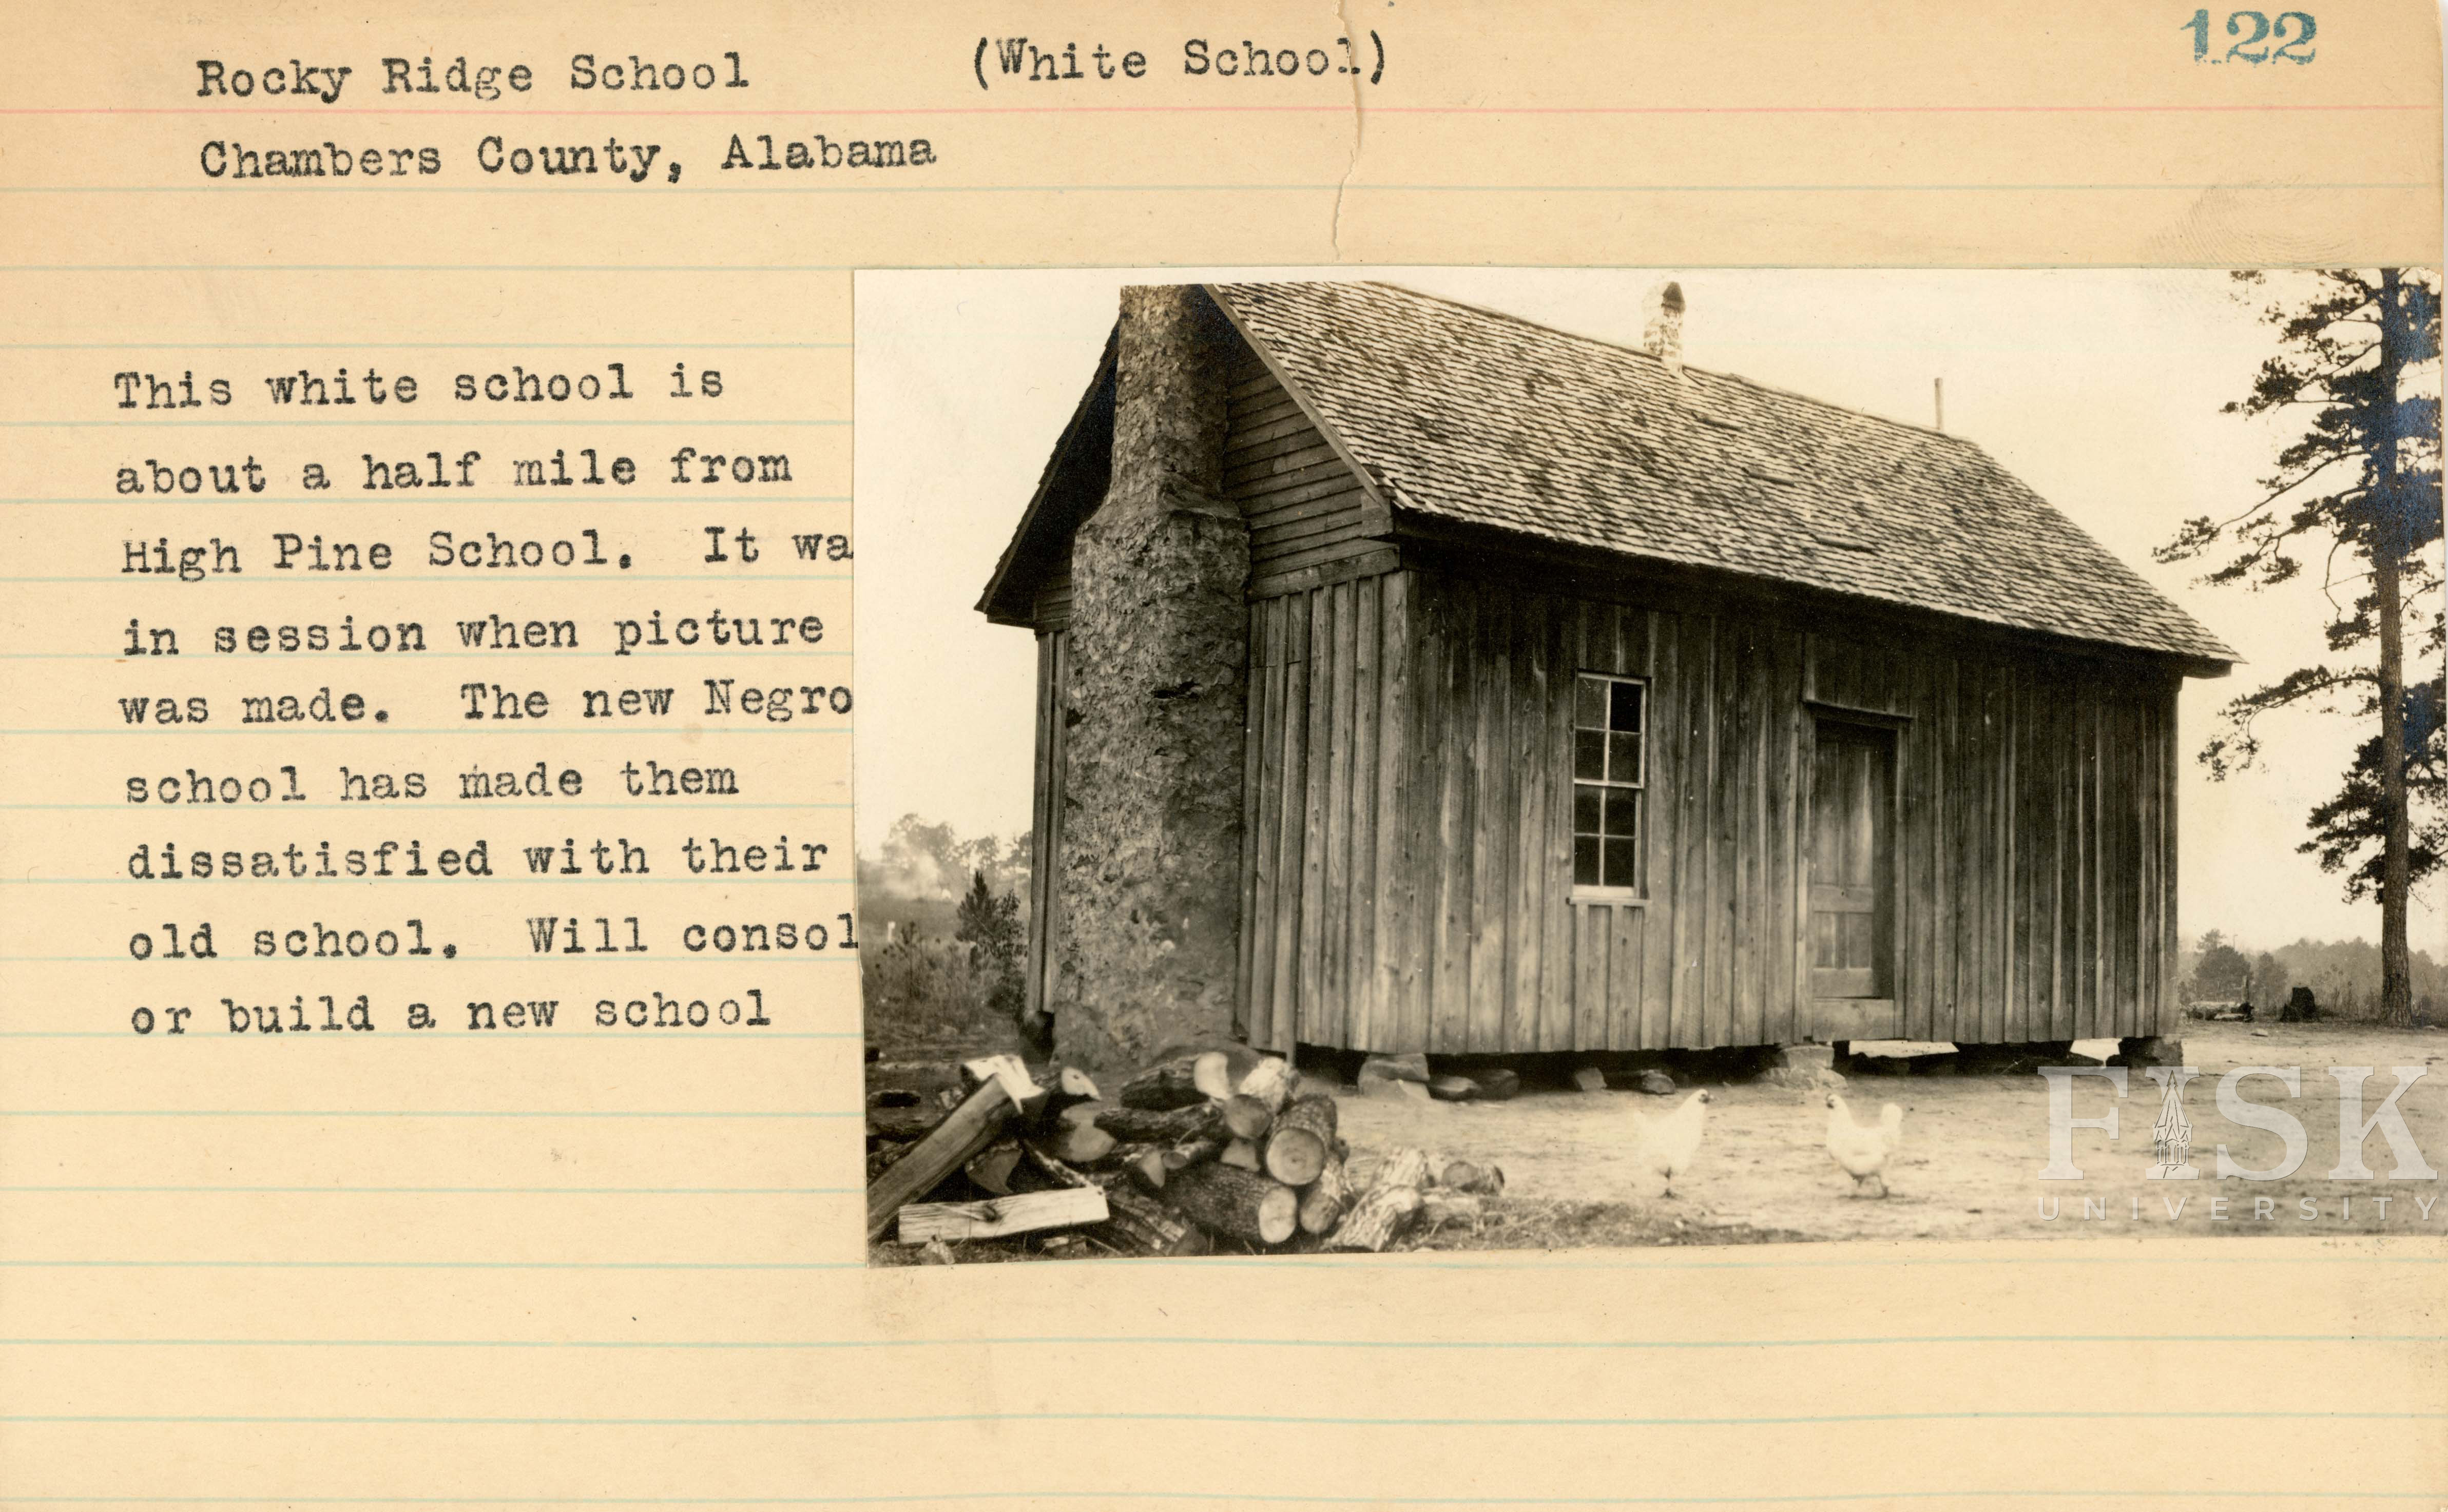 122
Rocky Ridge School (White School)
Chambers County, Alabama
This white school is
about a half mile from
High Pine School. It wa
in session when picture
was made. The new Negro
school has made them
dissatisfied with their
old school. Will consol
or build a new school
FISK
UNIVERSITY